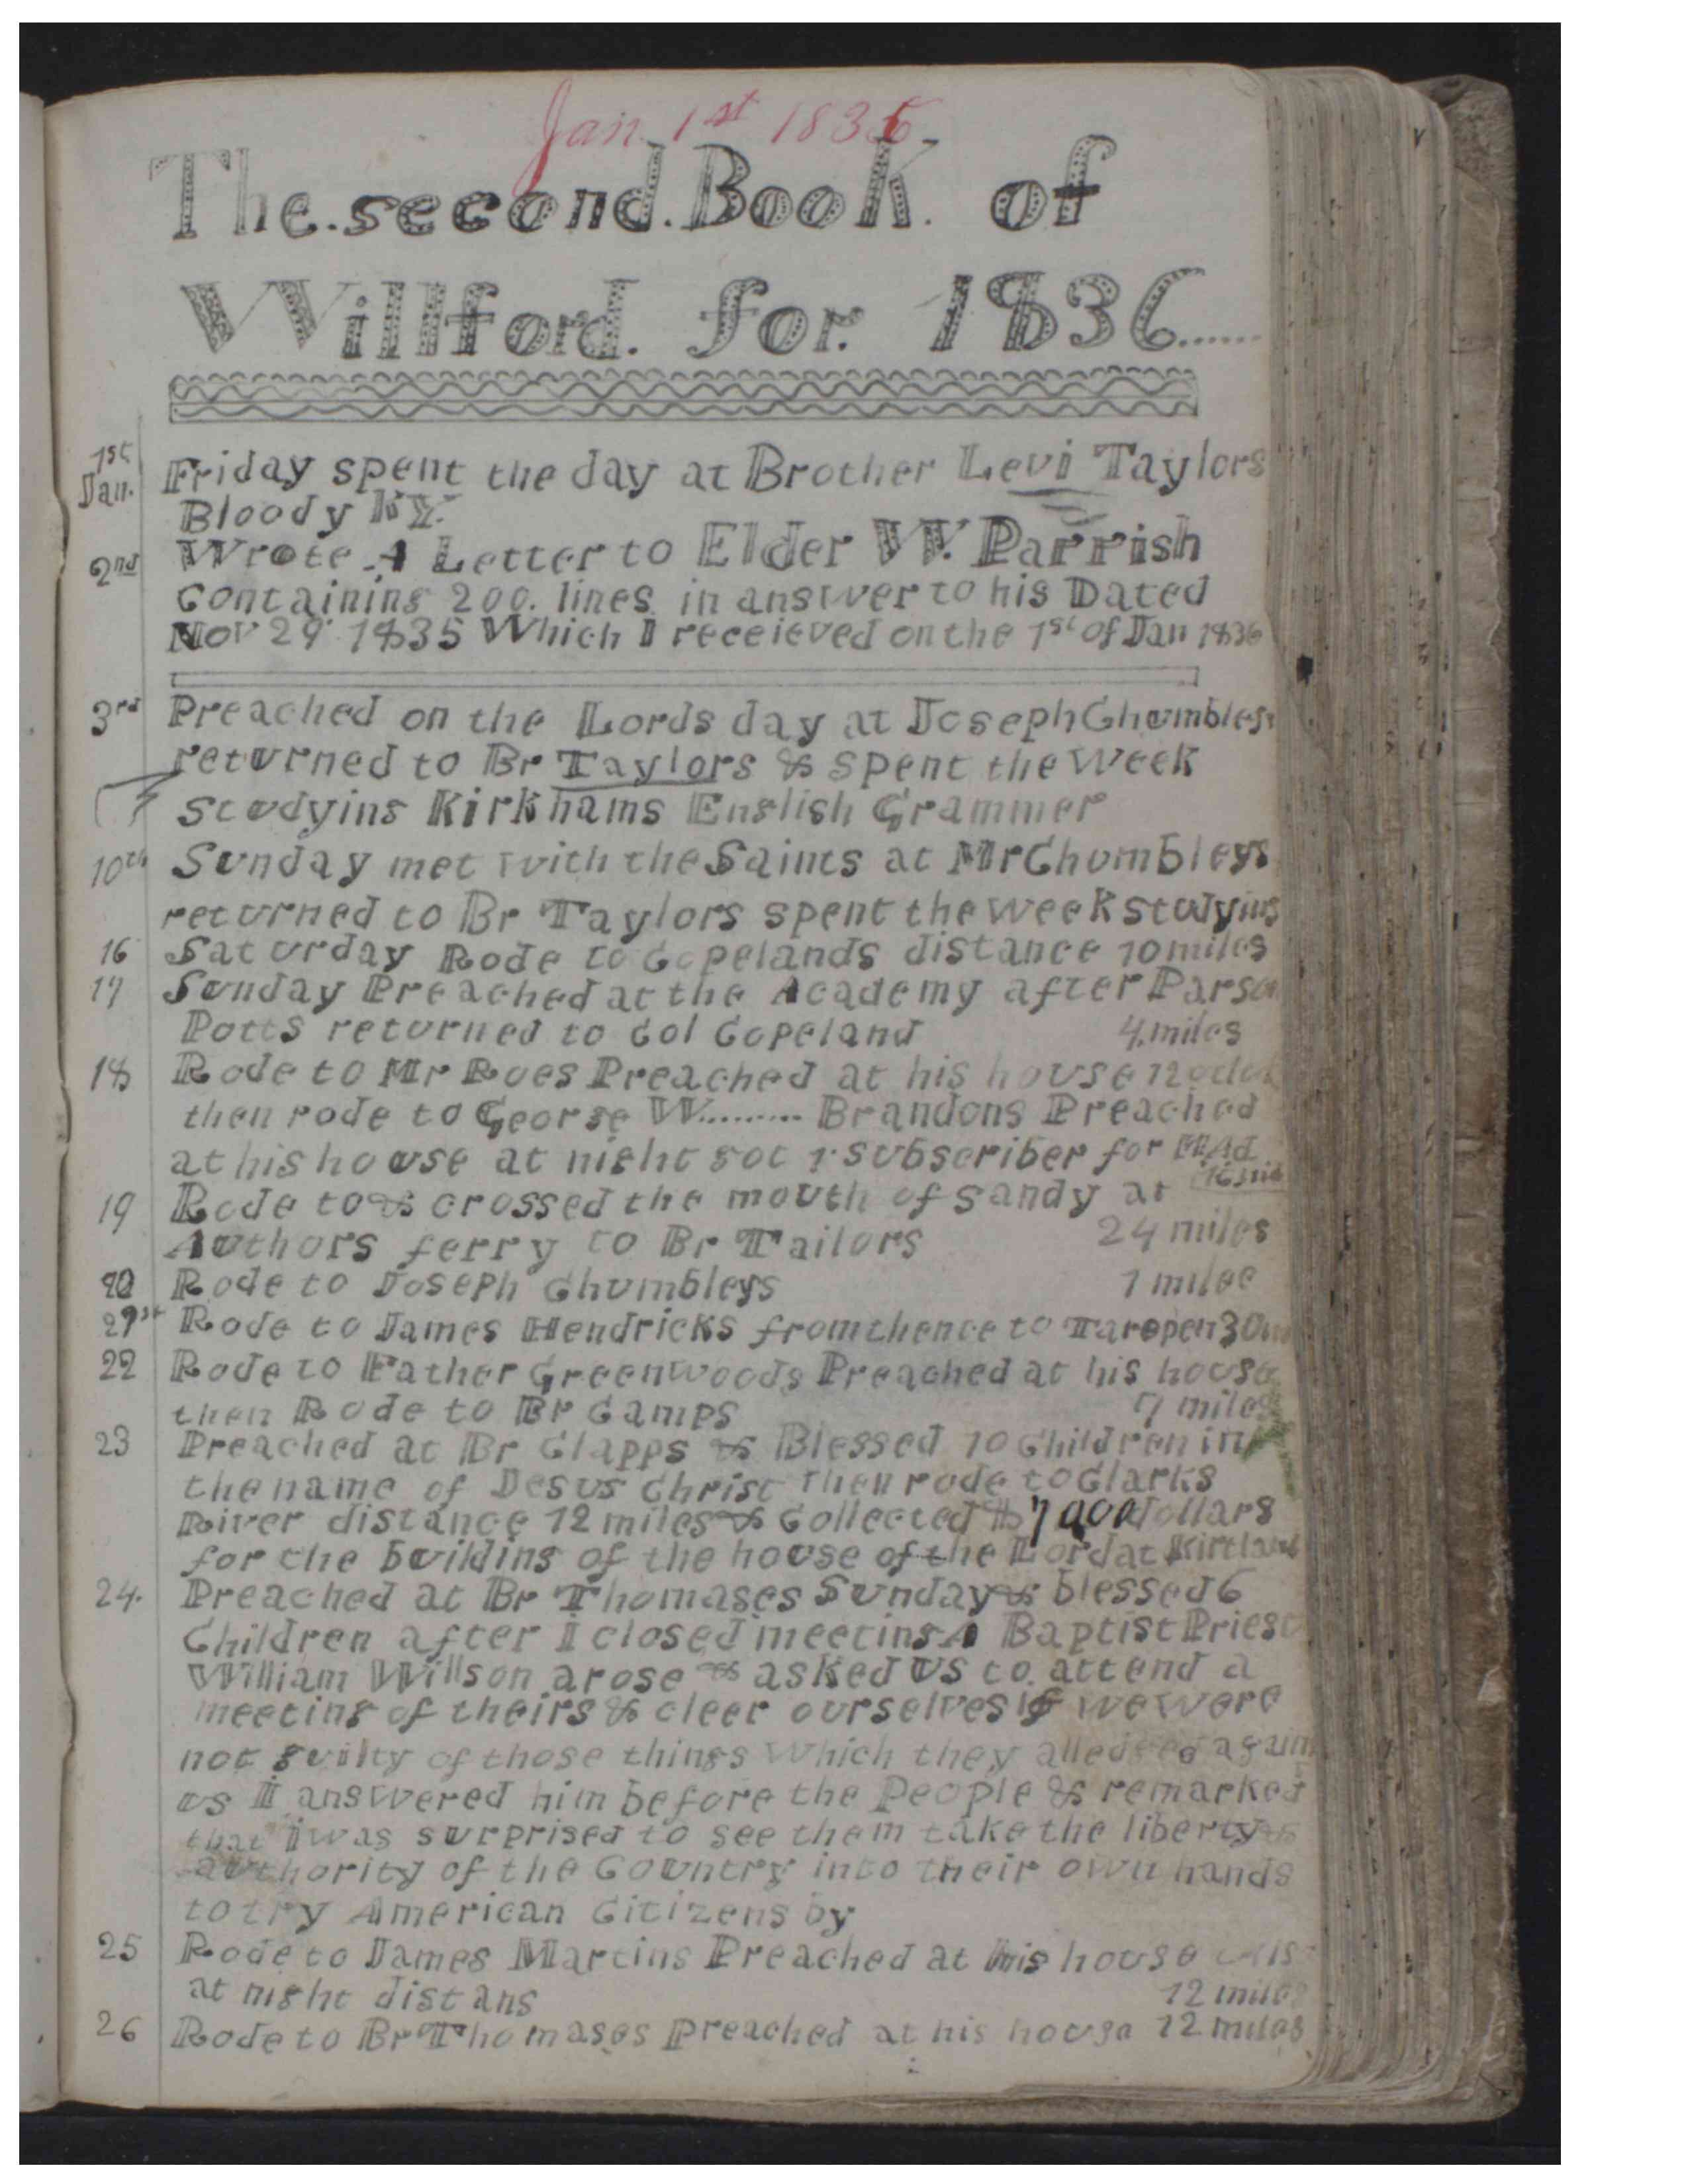 Jan. 1st 1836.
The. second. Book. of
Willford. for. 1836......
1st Jan. Friday spent the day at Brother Levi Taylors
Bloody Ky.
2nd Wrote A Letter to Elder W. Parrish
Containing 200. lines in answer to his Dated
Nov 29 1835 Which I receieved on the 1st of Jan 1836
3rd Preached on the Lords day at Joseph Chumbleys
returned to Br Taylors & spent the week
studying Kirkhams English Grammer
10th Sunday met with the Saints at Mr Chumbleys
returned to Br Taylors spent the week studying
16 Saturday Rode to Copelands distance 10 miles
17 Sunday Preached at the Academy after Parson
Potts returned to Col Copeland 4. miles
18 Rode to Mr Roes Preached at his house 12 oclock
then rode to George W......... Brandons Preached
at his house at night got 1 subscriber for M&Ad
16 mile
19 Rode to & crossed the mouth of Sandy at
Authors ferry to Br Tailors 24 miles
20 Rode to Joseph Chumbleys 1 milee
21st Rode to James Hendricks from thence to Taropen 30m
22 Rode to Father Greenwoods Preached at his house
then Rode to Br Camps 7 miles
23 Preached at Br Clapps & Blessed 10 Children in
the name of Jesus Christ then rode to Clarks
River distance 12 miles & Collected $ dollars
for the building of the house of the Lord at Kirtland
24. Preached at Br Thomases Sunday & blessed 6
Children after I closed meeting A Baptist Priest
William Willson arose & asked us to attend a
meeting of theirs & cleer ourselves if we were
not guilty of those things which they alledged again
us I answered him before the People & remarked
that I was surprised to see them take the liberty &
authority of the Country into their own hands
to try American Citizens by
25 Rode to James Martins Preached at his house
at night distans 12 miles
26 Rode to Br Thomases Preached at his house 12 miles